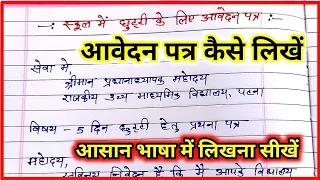 स्कूल में छुट्टी के लिए आवेदन पत्र
आवेदन पत्र कैसे लिखें
सेवा में,
श्रीमान प्रधानाध्यापक महोदय
राजकीय उच्च माध्यमिक विद्यालय, पटना
विषय - 5 दिन छुट्टी हेतु प्रथना पत्र
महोदय,
आसान भाषा में लिखना सीखें
सविनय निवेदन है कि मैं आपके विद्यालय